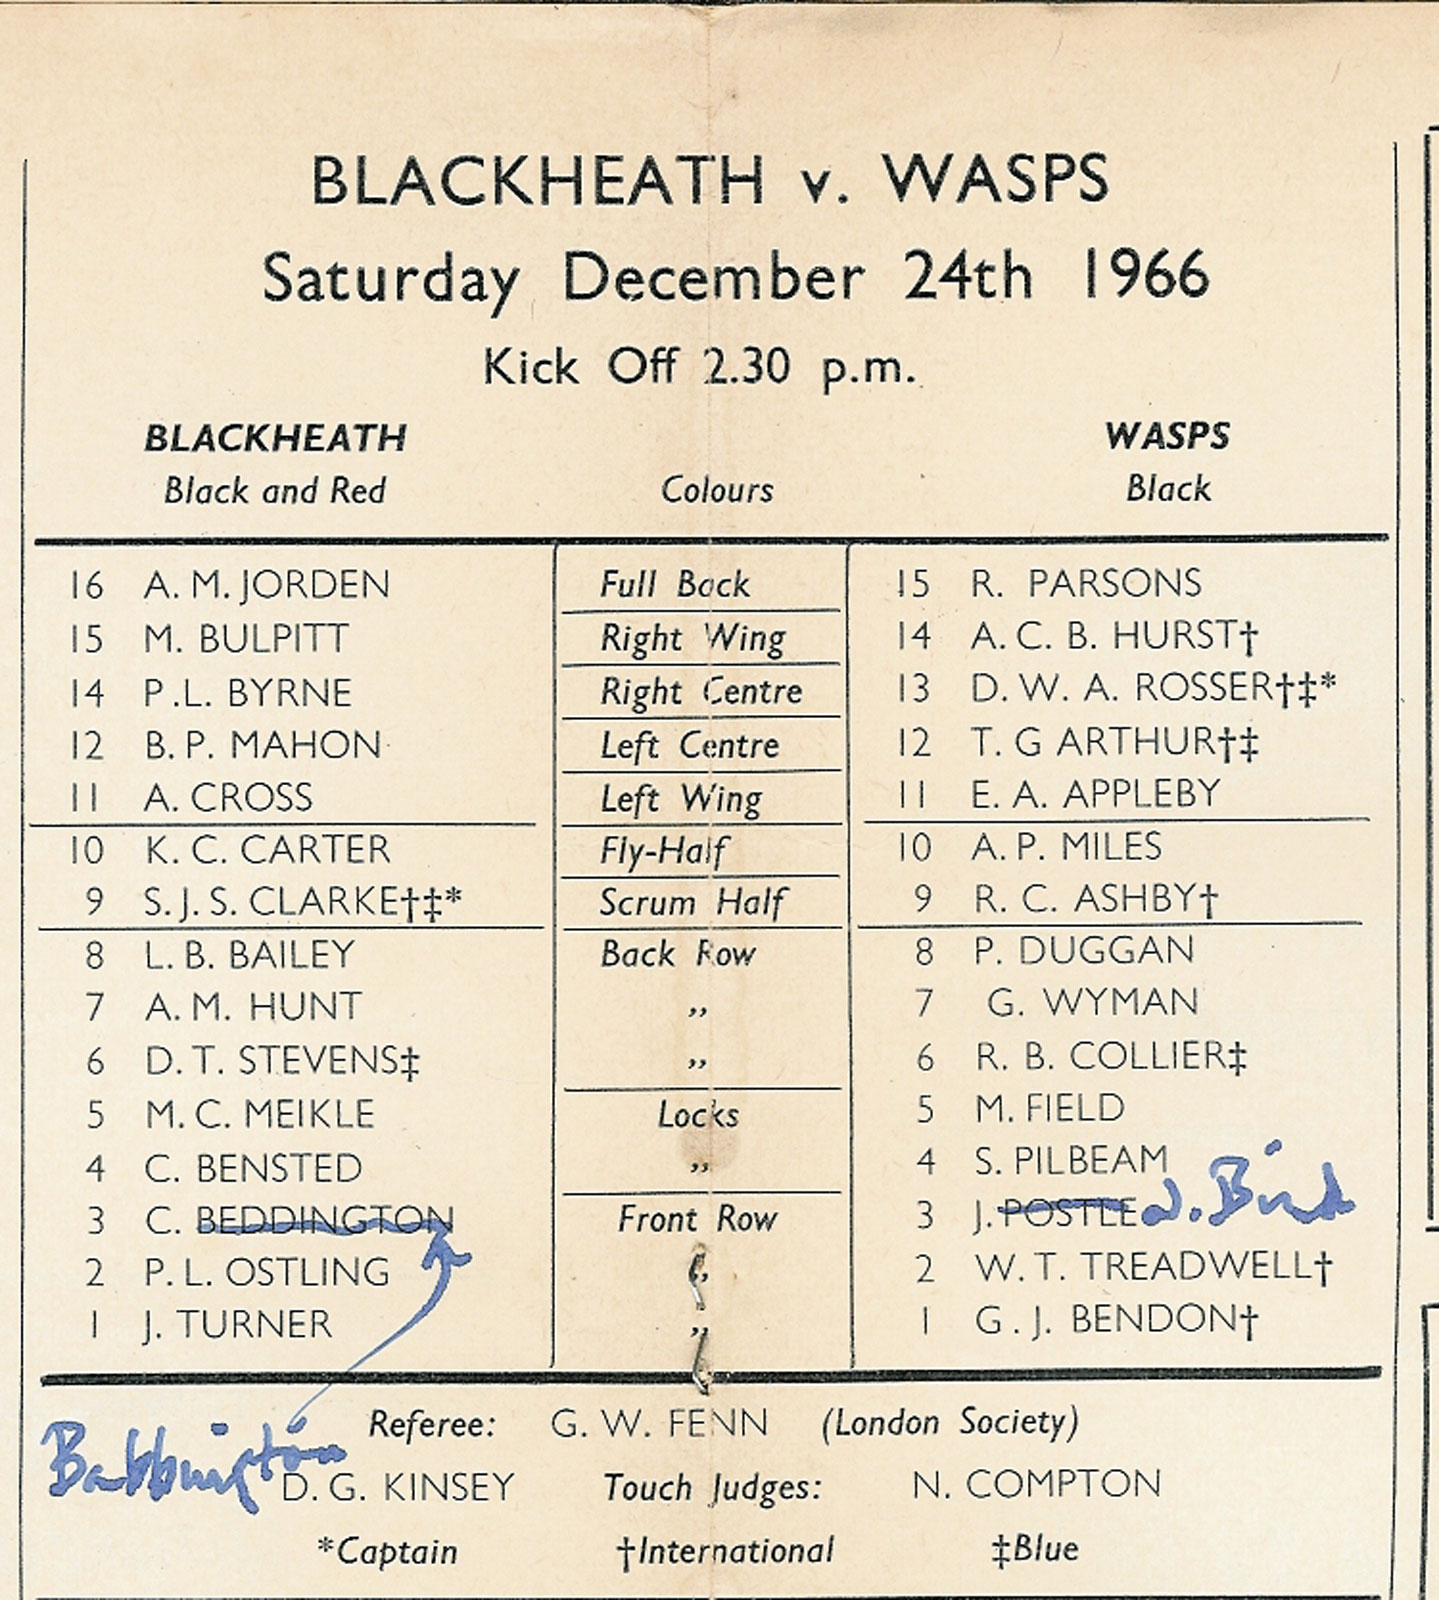 BLACKHEATH v. WASPS
Saturday December 24th 1966
Kick Off 2.30 p.m.
BLACKHEATH WASPS
Black and Red Colours Black
16 A. M. JORDEN Full Back 15 R. PARSONS
15 M. BULPITT Right Wing 14 A. C. B. HURST†
14 P.L. BYRNE Right Centre 13 D. W. A. ROSSER†‡*
12 B. P. MAHON Left Centre 12 T. G ARTHUR†‡
11 A. CROSS Left Wing 11 E. A. APPLEBY
10 K. C. CARTER Fly-Half 10 A. P. MILES
9 S. J. S. CLARKE†‡* Scrum Half 9 R. C. ASHBY†
8 L. B. BAILEY Back Row 8 P. DUGGAN
7 A. M. HUNT ,, 7 G. WYMAN
6 D. T. STEVENS‡ ,, 6 R. B. COLLIER‡
5 M. C. MEIKLE Locks 5 M. FIELD
4 C. BENSTED ,, 4 S. PILBEAM
3 C. BEDDINGTON Front Row 3 J. POSTLE
2 P. L. OSTLING ,, 2 W. T. TREADWELL†
1 J. TURNER ,, 1 G. J. BENDON†
Referee: G. W. FENN (London Society)
Babbington
D. G. KINSEY Touch Judges: N. COMPTON
*Captain †International ‡Blue